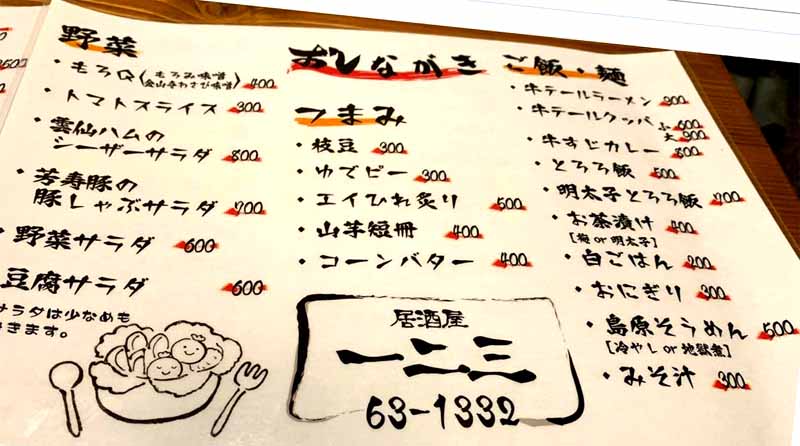 野菜
・もろQ(もろみ味噌 金山寺わさび味噌) 400
・トマトスライス 300
・雲仙ハムの
シーザーサラダ 800
・芳寿豚の
豚しゃぶサラダ 700
・野菜サラダ 600
豆腐サラダ 600
サラダは少なめも
できます。
おしながき
つまみ
・枝豆 300
・ゆでピー 300
・エイひれ炙り 500
・山芋短冊 400
・コーンバター 400
居酒屋
一二三
63-1332
ご飯・麺
・牛テールラーメン
・牛テールクッパ 小 600
大 900
・牛すじカレー 800
・とろろ飯 500
・明太子とろろ飯 700
・お茶漬け 400
[梅 or 明太子]
・白ごはん 200
・おにぎり 300
・島原そうめん 500
[冷やし or 地獄煮]
・みそ汁 300